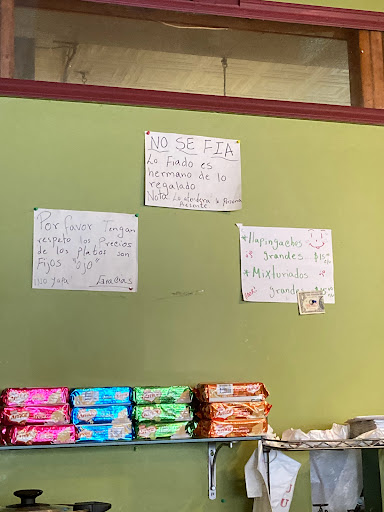 NO SE FIA
Lo Fiado es
hermano de lo
regalado
Nota: Lo atenderá la Persona
Por favor Tengan
respeto los Precios
de los platos son
Fijos "OJO"
NO yapa. Gracias
*Llapingachos
grandes $15
*Mixturiados
grandes